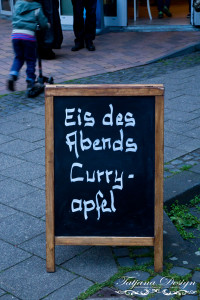 Eis des
Abends
Curry-
apfel
Tatjana Design